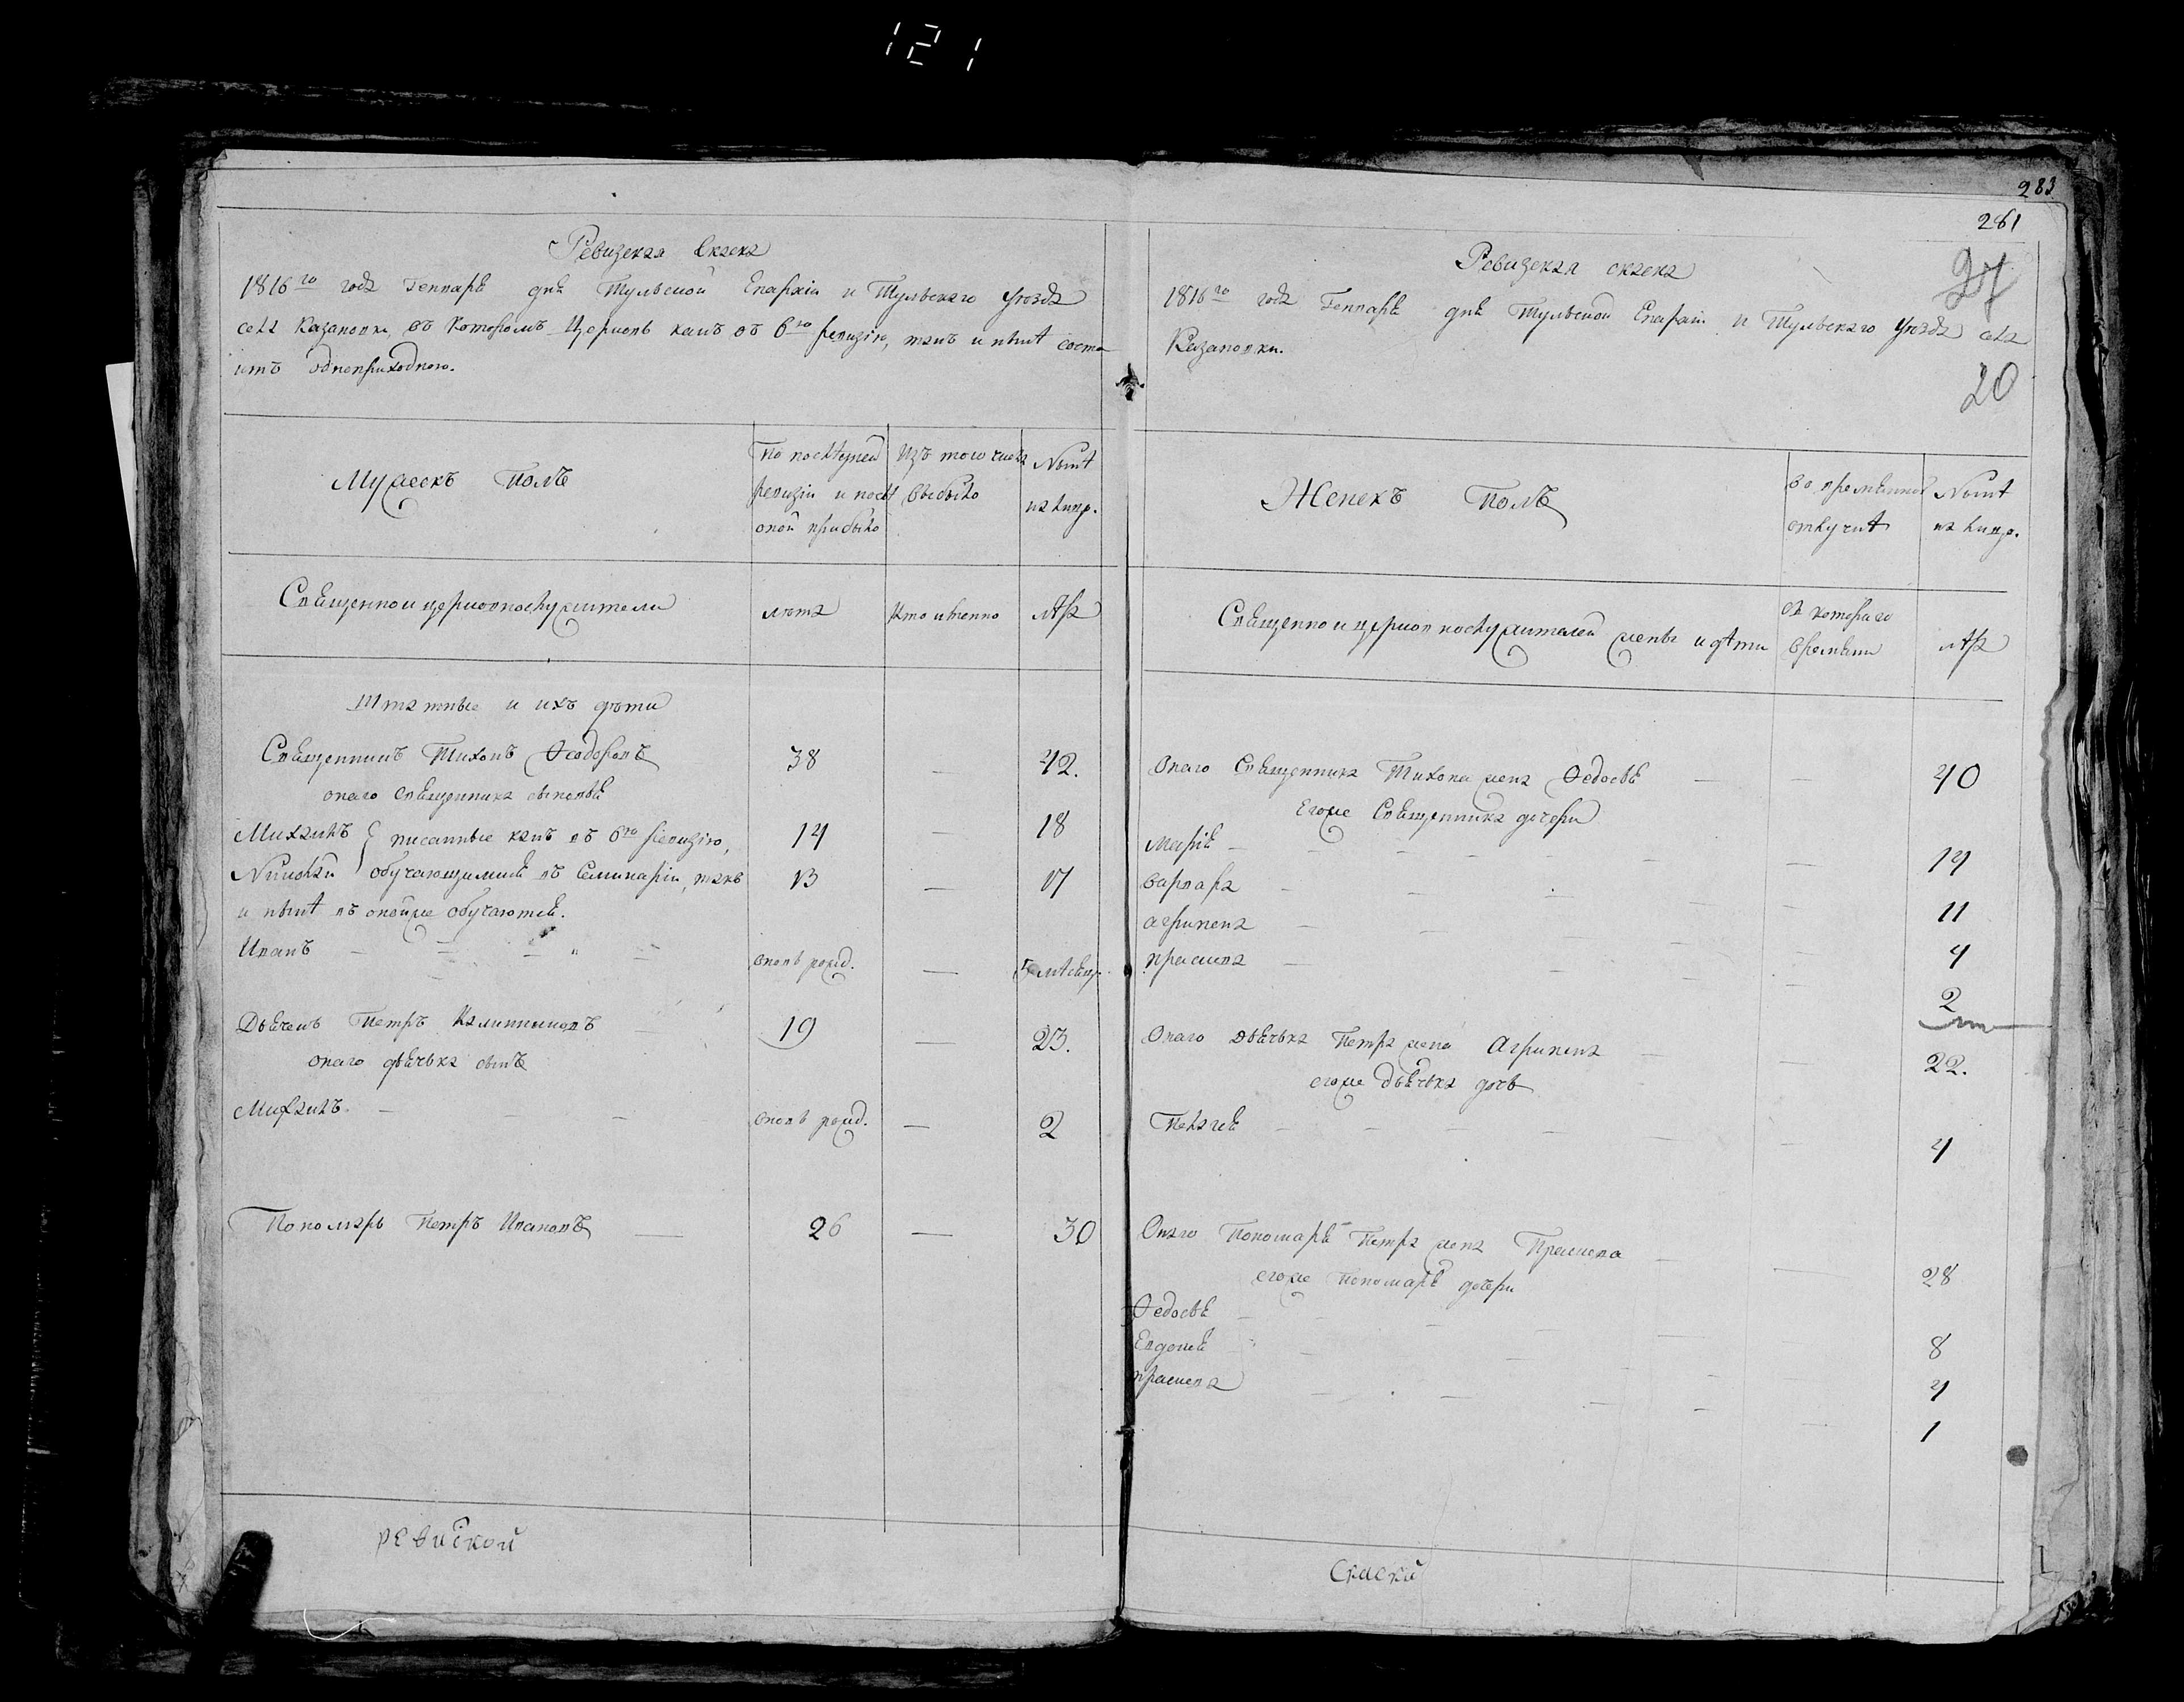 121
283
261
27
20
Ревизская Скаска
1816го года Генваря дня Тульской Епархіи и Тульскаго уѣзда
села Казановки, въ которомъ Церковь какъ въ 6ю ревизію, такъ и нынѣ состо
итъ одноприходною.
Мужескъ Полъ
По послѣдней
ревизіи и послѣ
оной прибыло
Изъ того числа
выбыло
Нынѣ
на лицо.
Священно и церковнослужители
лѣта
Кто имянно
лѣта
Штатные и ихъ дѣти
Священникъ Тихонъ Ѳеодоровъ 38 — 42.
онаго священника сыновья
Михаилъ писанные какъ въ 6ю ревизію, 14 — 18
Никифъ обучающимися въ Семинаріи, такъ 13 — 17
и нынѣ въ онойже обучаются.
Иванъ — вновь рожд. — 5 мѣсяц.
Дьячекъ Петръ Калинниковъ 19 — 23.
онаго дьячка сынъ
Михаилъ — вновь рожд. — 2
Пономарь Петръ Ивановъ — 26 — 30
ревиской
Ревизская скаска
1816го года Генваря дня Тульской Епархіи и Тульскаго уѣзда села
Казановки.
Женскъ Полъ
Во временной
отлучкѣ
Нынѣ
на лицо.
Священно и церковнослужителей жены и дѣти
съ котораго
времени
лѣта
Онаго Священника Тихона жена Ѳедосья — 40
Егоже Священника дочери
Марья — 14
Варвара — 11
агрипена — 4
прасковья — 2
Онаго дьячка Петра жена Агрипена — 22.
егоже дьячка дочь
Пелагея — 4
Онаго Пономаря Петра жена Прасковья — 28
егоже пономаря дочери
Ѳедосья — 8
Евдокея — 4
прасковья — 1
Скаски